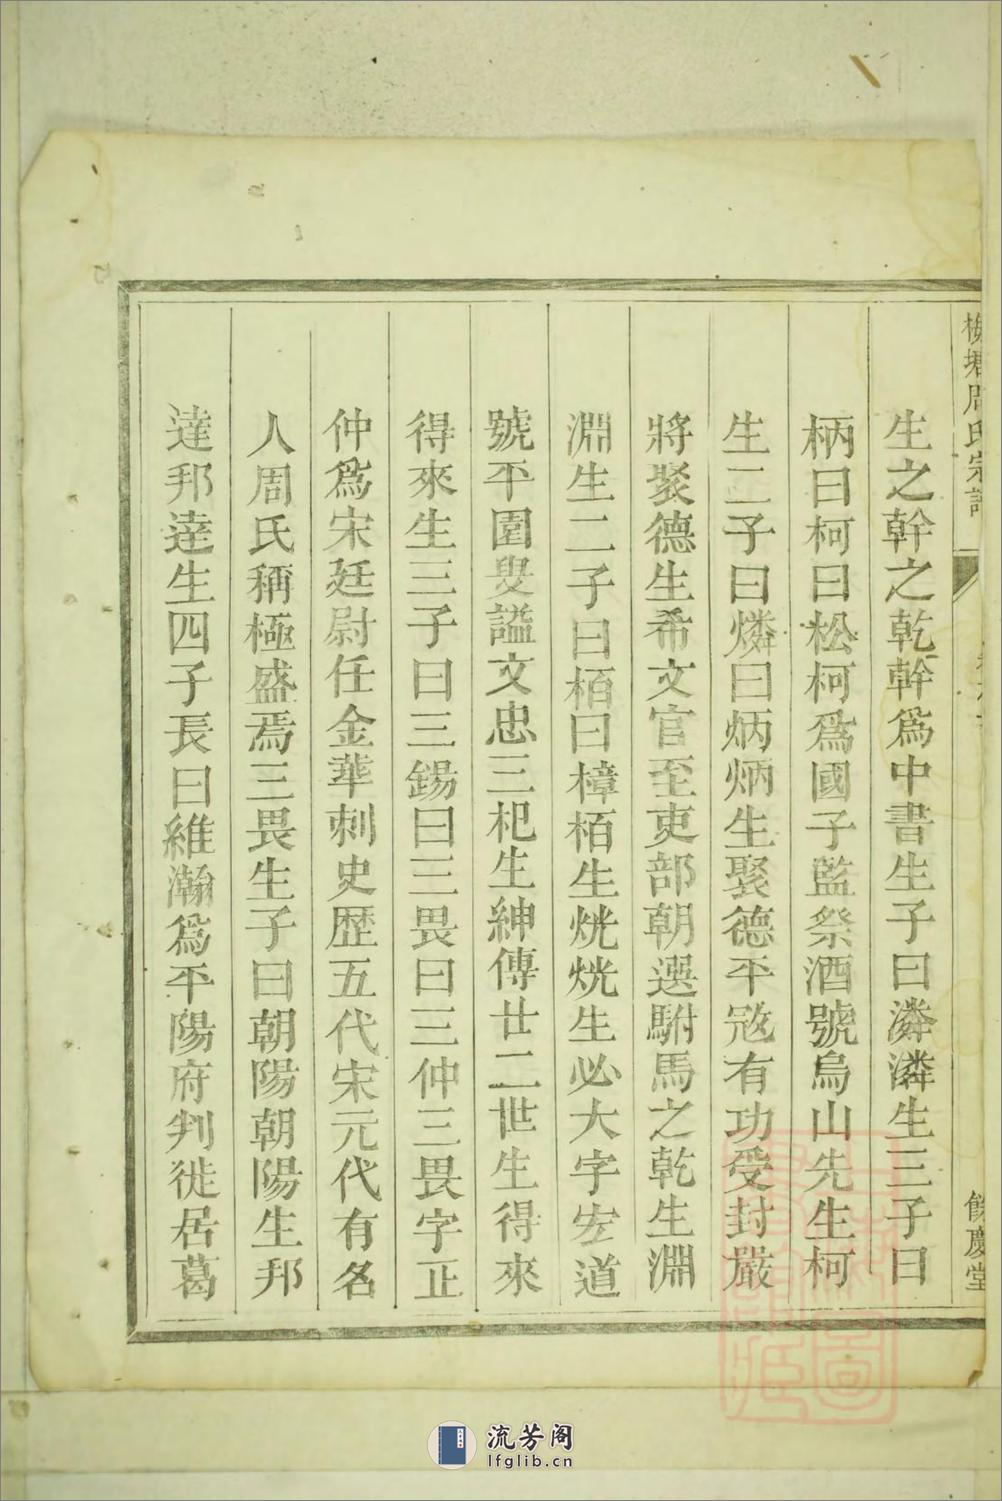 周氏宗譜
餘慶堂
生之幹之乾幹爲中書生子曰潾潾生三子曰
柄曰柯曰松柯爲國子監祭酒號烏山先生柯
生二子曰燐曰炳炳生聚德平宼有功受封嚴
將聚德生希文官至吏部朝選駙馬之乾生淵
淵生二子曰栢曰樟栢生烑烑生必大字宏道
號平園叟謚文忠三杞生紳傳廿二世生得來
得來生三子曰三錫曰三畏曰三仲三畏字正
仲爲宋廷尉任金華刺史歷五代宋元代有名
人周氏稱極盛焉三畏生子曰朝陽朝陽生邦
達邦達生四子長曰維瀚爲平陽府判徙居葛
流芳阁
lfglib.cn